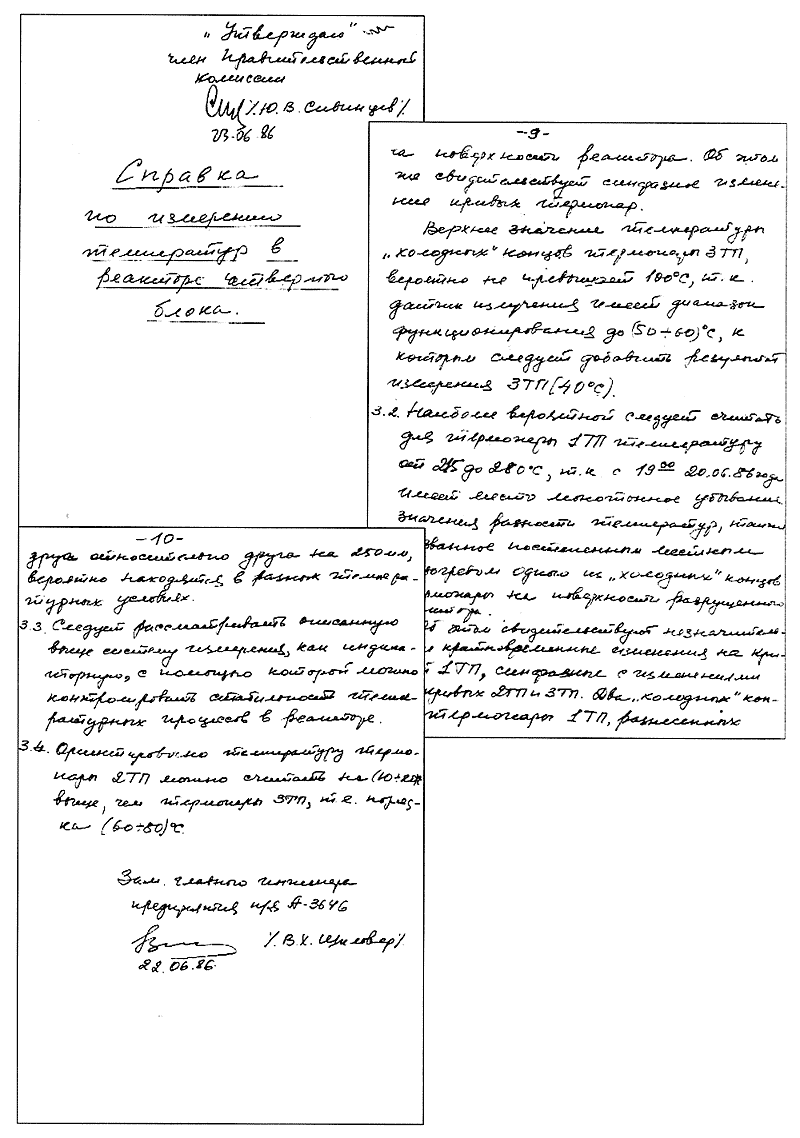 „Утверждаю"
член Правительственной
комиссии
/Ю.В. Сивинцев/
23.06.86
Справка
по измерению
температур в
реакторе четвертого
блока.
-9-
ча поверхности реактора. Об этом
же свидетельствует синфазное измене-
ние кривых термопар.
Верхнее значение температуры
„холодных" концов термопары 3ТП,
вероятно не превышает 100°С, т.к.
датчик излучения имеет диапазон
функционирования до (50÷60)°С, к
которым следует добавить результат
измерения 3ТП (40°С).
3.2. Наиболее вероятной следует считать
для термопары 1ТП температуру
от 215 до 280°С, т.к с 19⁰⁰ 20.06.86 года
имеет место монотонное убывание
значения разности температур,
званное постепенным местным
огревом одного из „холодных" концов
рмопары на поверхности разрушенного
ктора.
б этом свидетельствуют незначитель-
е кратковременные изменения на кри-
й 1ТП, синфазные с изменениями
кривых 2ТП и 3ТП. Два „холодных" кон-
термопары 1ТП, разнесенных
-10-
друг относительно друга на 250 мм,
вероятно находятся в разных темпера-
турных условиях.
3.3. Следует рассматривать описанную
выше систему измерения, как индика-
торную, с помощью которой можно
контролировать стабильность темпе-
ратурных процессов в реакторе.
3.4. Ориентировочно температуру термо-
пары 2ТП можно считать на
выше, чем термопары 3ТП, т.е. поряд-
ка (60÷80)°С.
Зам. главного инженера
предприятия п/я А-3646
/В.Х. /
22.06.86.